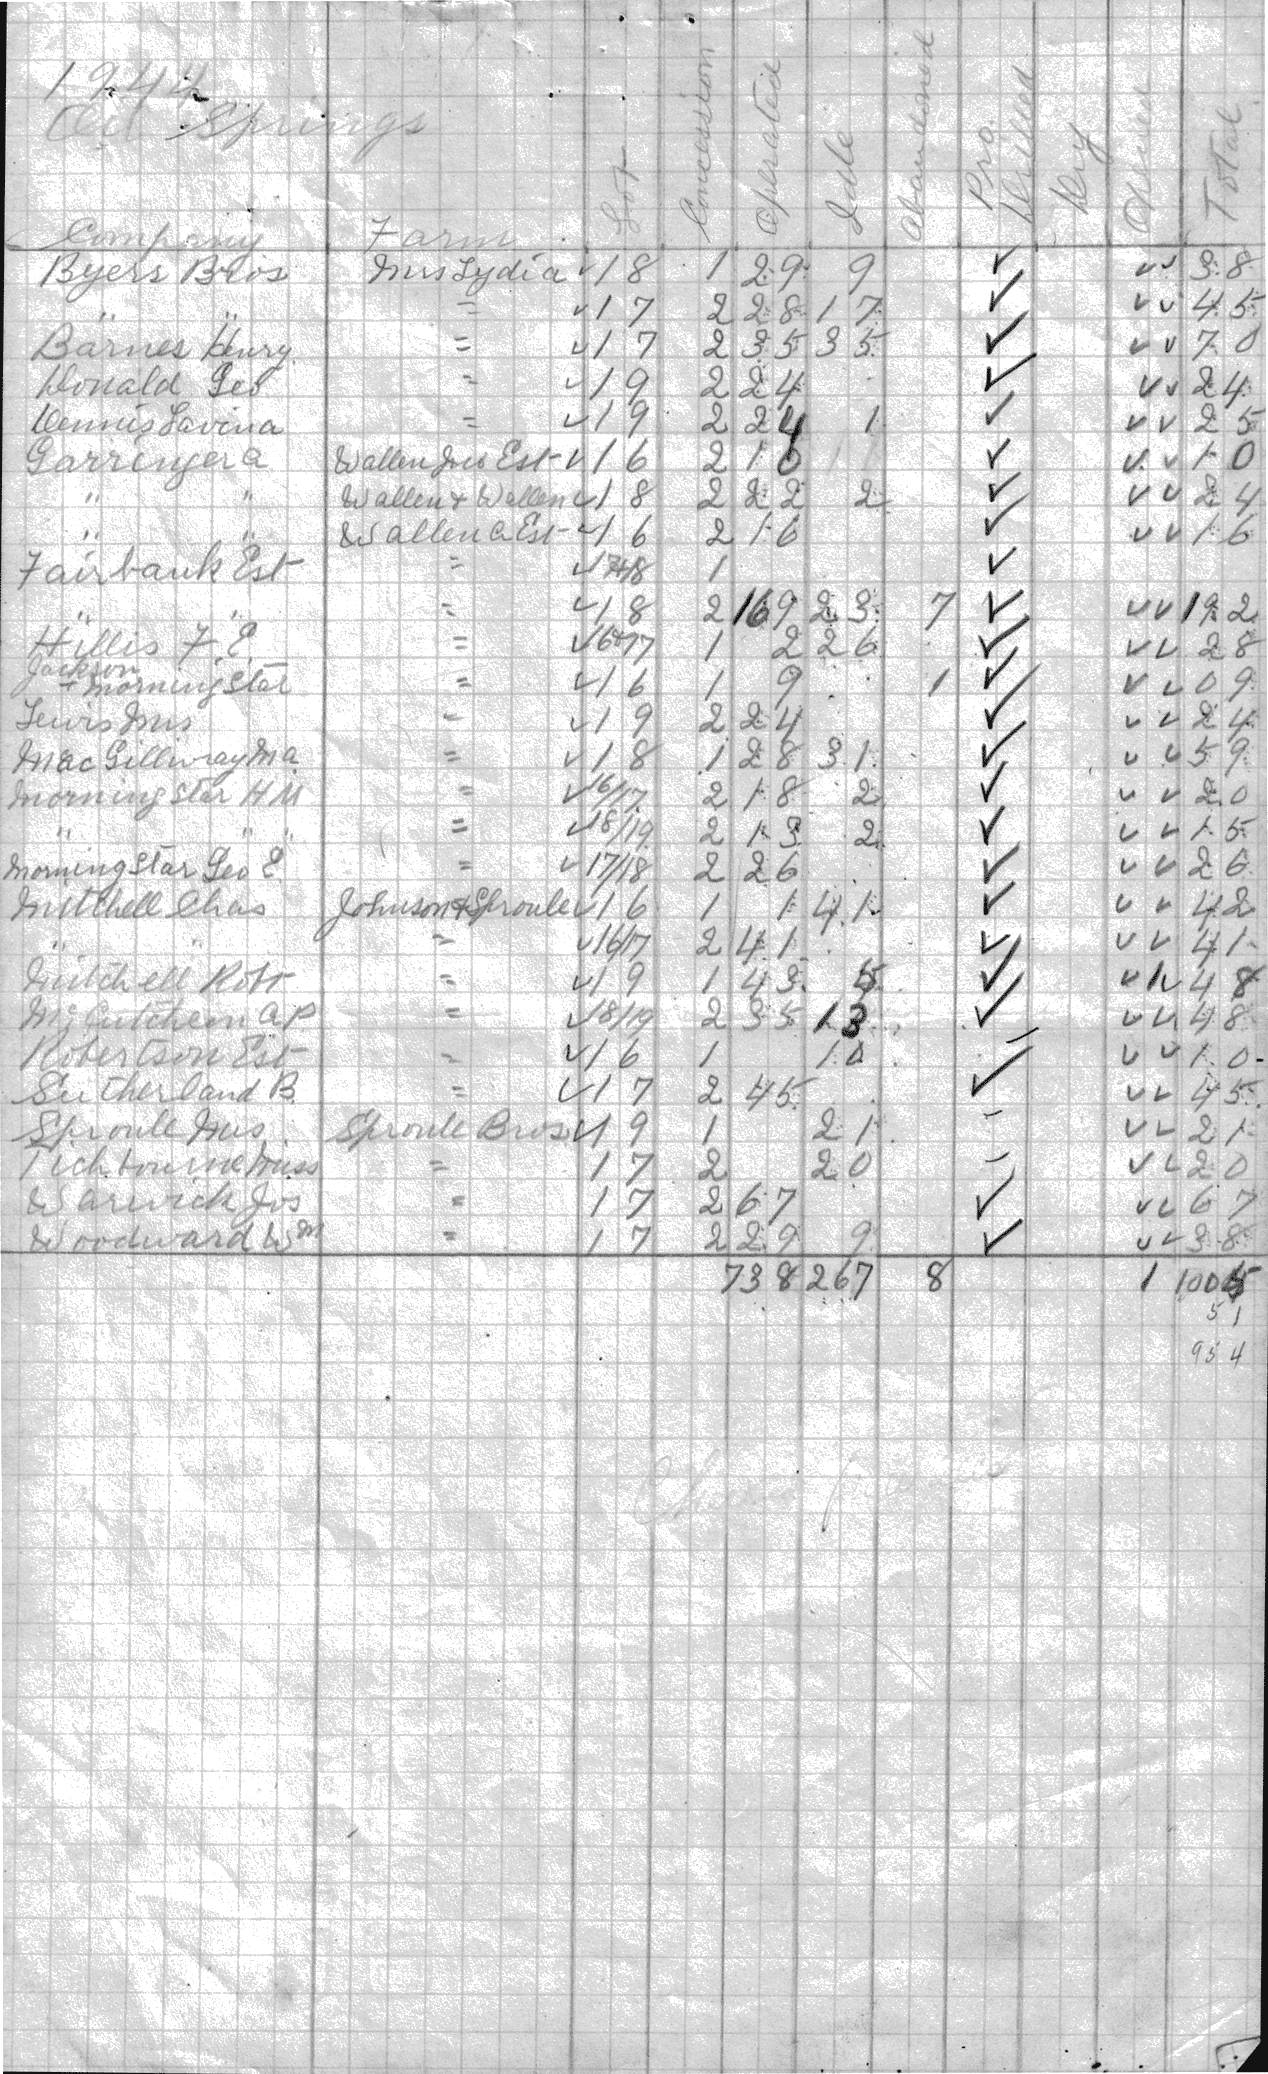 1944
Oil Springs
Company Farm Lot Concession Operated Idle Abandoned Pro. Drilled Dry Opened Total
Byers Bros Mrs Lydia ✓18 1 29 9 ✓ ✓✓ 38
" " = ✓17 2 28 17 ✓ ✓✓ 45
Barnes Henry = ✓17 2 35 35 ✓ ✓✓ 70
Donald Geo = ✓19 2 24 ✓ ✓✓ 24
Dennis Lavina = ✓19 2 24 1 ✓ ✓✓ 25
Garringer A Wallen Jno Est ✓16 2 10 ✓ ✓✓ 10
" " Wallen & Wallen ✓18 2 22 2 ✓ ✓✓ 24
" " Wallen A Est ✓16 2 16 ✓ ✓✓ 16
Fairbank Est = ✓17+18 1 ✓
" " = ✓18 2 169 23 7 ✓ ✓✓ 192
Hillis F.E. = ✓16+17 1 2 26 ✓ ✓✓ 28
Jackson + Morningstar = ✓16 1 9 1 ✓ ✓✓ 09
Lewis Mrs = ✓19 2 24 ✓ ✓✓ 24
MacGillivray Ma = ✓18 1 28 31 ✓ ✓✓ 59
Morningstar H M = ✓16/17 2 18 2 ✓ ✓✓ 20
" " " = ✓18/19 2 13 2 ✓ ✓✓ 15
Morningstar Geo E. = ✓17/18 2 26 ✓ ✓✓ 26
Mitchell Chas Johnson & Sproule ✓16 1 1 41 ✓ ✓✓ 42
" " = ✓16/17 2 41 ✓ ✓✓ 41
Mitchell Robt = ✓19 1 43 5 ✓ ✓ 1 ✓ 48
McCutcheon A P = ✓18/19 2 35 13 ✓ ✓✓ 48
Robertson Est = ✓16 1 10 - ✓✓ 10
Sutherland B. = ✓17 2 45 ✓ ✓✓ 45
Sproule Mrs Sproule Bros ✓19 1 21 - ✓✓ 21
Tichbourne Miss = 17 2 20 - ✓✓ 20
Warwick Jos = 17 2 67 ✓ ✓✓ 67
Woodward Wm = 17 2 29 9 ✓ ✓✓ 38
738 267 8 1 1005
51
954